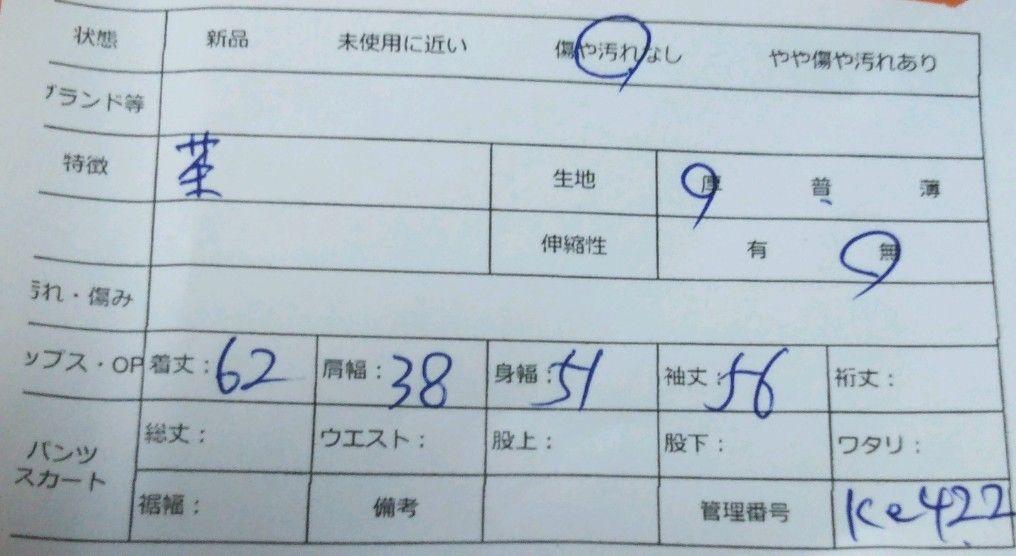 状態 新品 未使用に近い 傷や汚れなし やや傷や汚れあり
ブランド等
特徴 生地 厚 普 薄
伸縮性 有 無
汚れ・傷み
ップス・OP 着丈:62 肩幅:38 身幅:51 袖丈:56 裄丈:
パンツ スカート 総丈: ウエスト: 股上: 股下: ワタリ:
裾幅: 備考 管理番号 Ke422